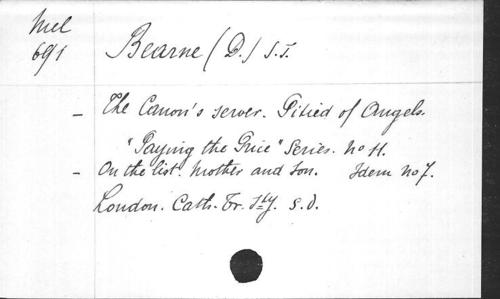 Mel
691
Bearne (D.) S.J.
- The Canon's server. Pitied of Angels.
"Paying the Price" Series. No 11.
- On the list. Mother and Son. Idem No 7.
London. Cath. Tr. Sty. s.d.